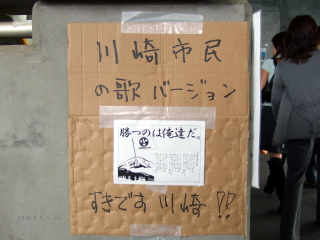 川崎市民
の歌バージョン
勝つのは俺達だ。
すきです川崎!!